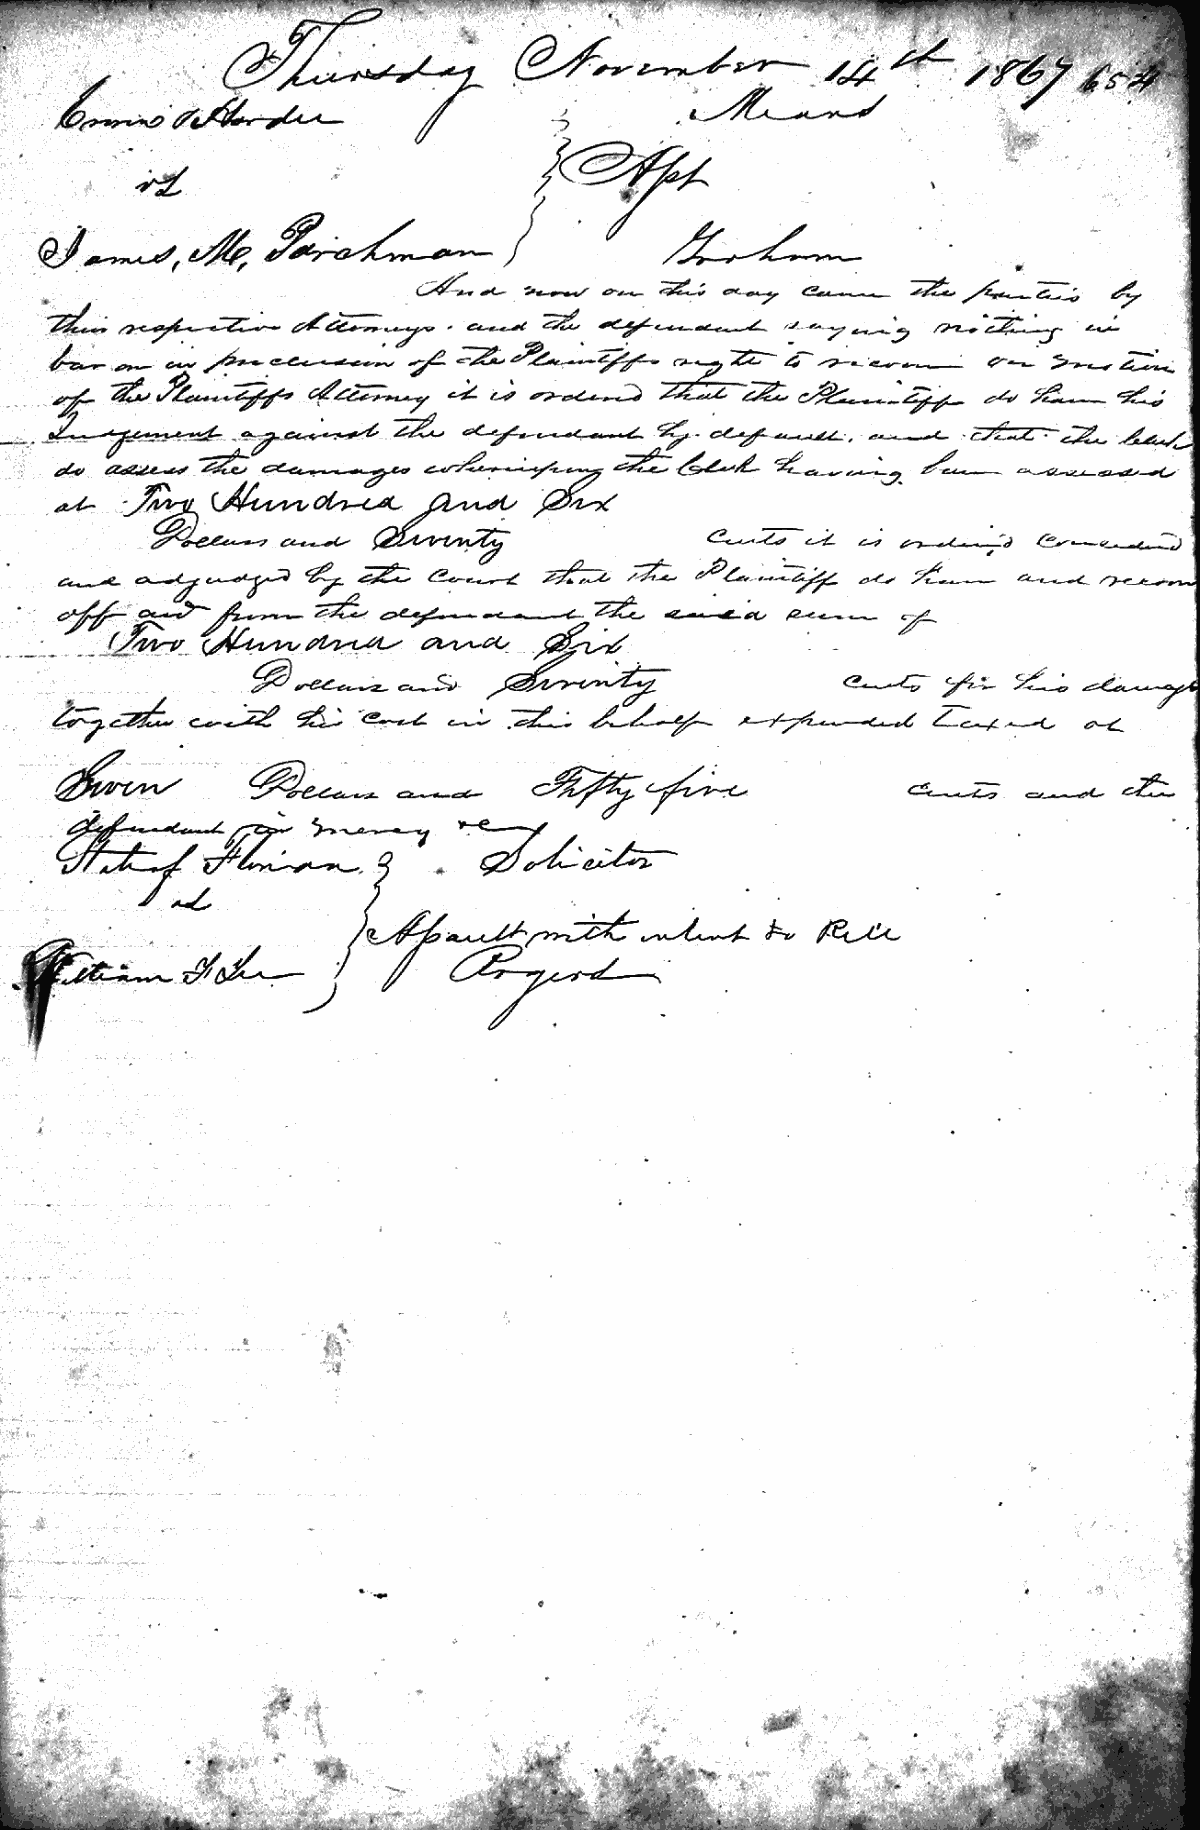 Thursday November 14th 1867 654
Harder Means
vs Apt
James, M, Parchman Graham
And now on this day came the parties by
their respective Attorneys. and the defendant saying nothing in
bar or in preclusion of the Plaintiffs right to recover on motion
of the Plaintiffs Attorney it is ordered that the Plaintiff do have his
Judgement against the defendant by default. and that the Clerk
do assess the damages whereupon the Clerk having been assessed
at Two Hundred and Six
Dollars and Seventy cents it is ordered considered
and adjudged by the Court that the Plaintiff do have and recover
off and from the defendant the said sum of
Two Hundred and Six
Dollars and Seventy cents for his damages
together with his cost in this behalf expended taxed at
Seven Dollars and Fifty five cents and the
defendant in mercy &c
State of Florida Solicitor
vs
Assault with intent to Kill
William F Lee Rogers